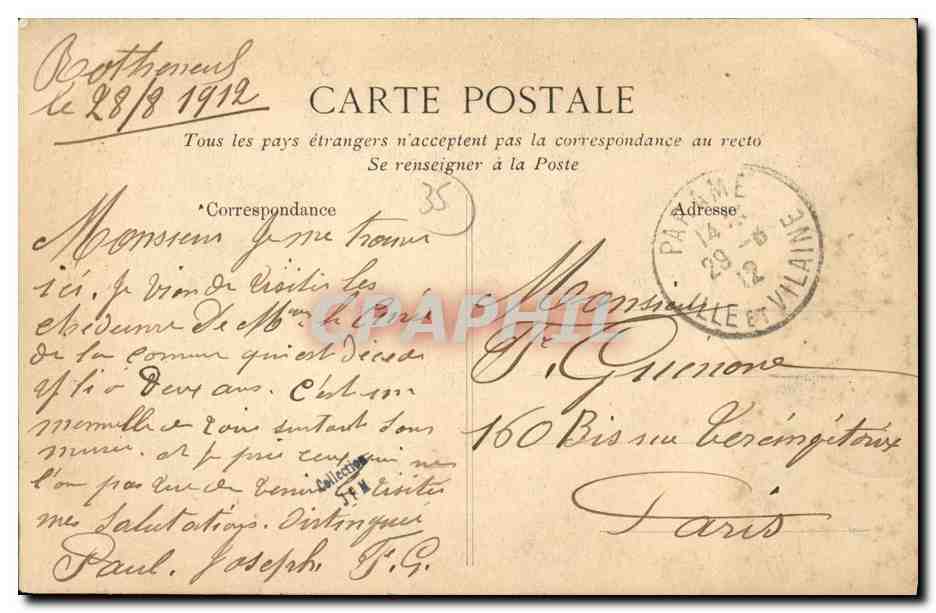 Rotheneuf
le 28/8 1912
CARTE POSTALE
Tous les pays étrangers n'acceptent pas la correspondance au recto
Se renseigner à la Poste
35
Correspondance
Adresse
PARAMÉ
14
29 -8
12
ILLE ET VILAINE
Monsieur Je me trouve
ici. Je vien de visiter les
de Mr le Curé
de la comune qui est décédé
il i a deux ans. c'est un
merveille a voir surtout dans
et je prie ceux qui ne
l'on pas vue de venir visiter
mes Salutations Distingué
Paul. Joseph. F. G.
Monsieur
160 Bis rue Vercingétorix
Paris
CPAPHIL
Collection
J F M